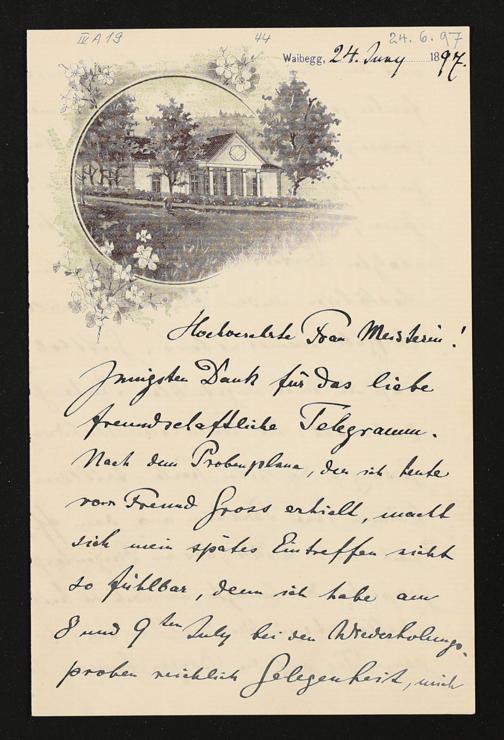 IV A 19 44 24. 6. 97
Waibegg, 24. Juny 1897.
Hochverehrte Frau Meisterin!
Innigsten Dank für das liebe
freundschaftliche Telegramm.
Nach dem Probenplane, den ich heute
von Freund Gross erhielt, macht
sich mein spätes Eintreffen nicht
so fühlbar, denn ich habe am
8 und 9ten July bei den Wiederholungs-
proben reichlich Gelegenheit, mich